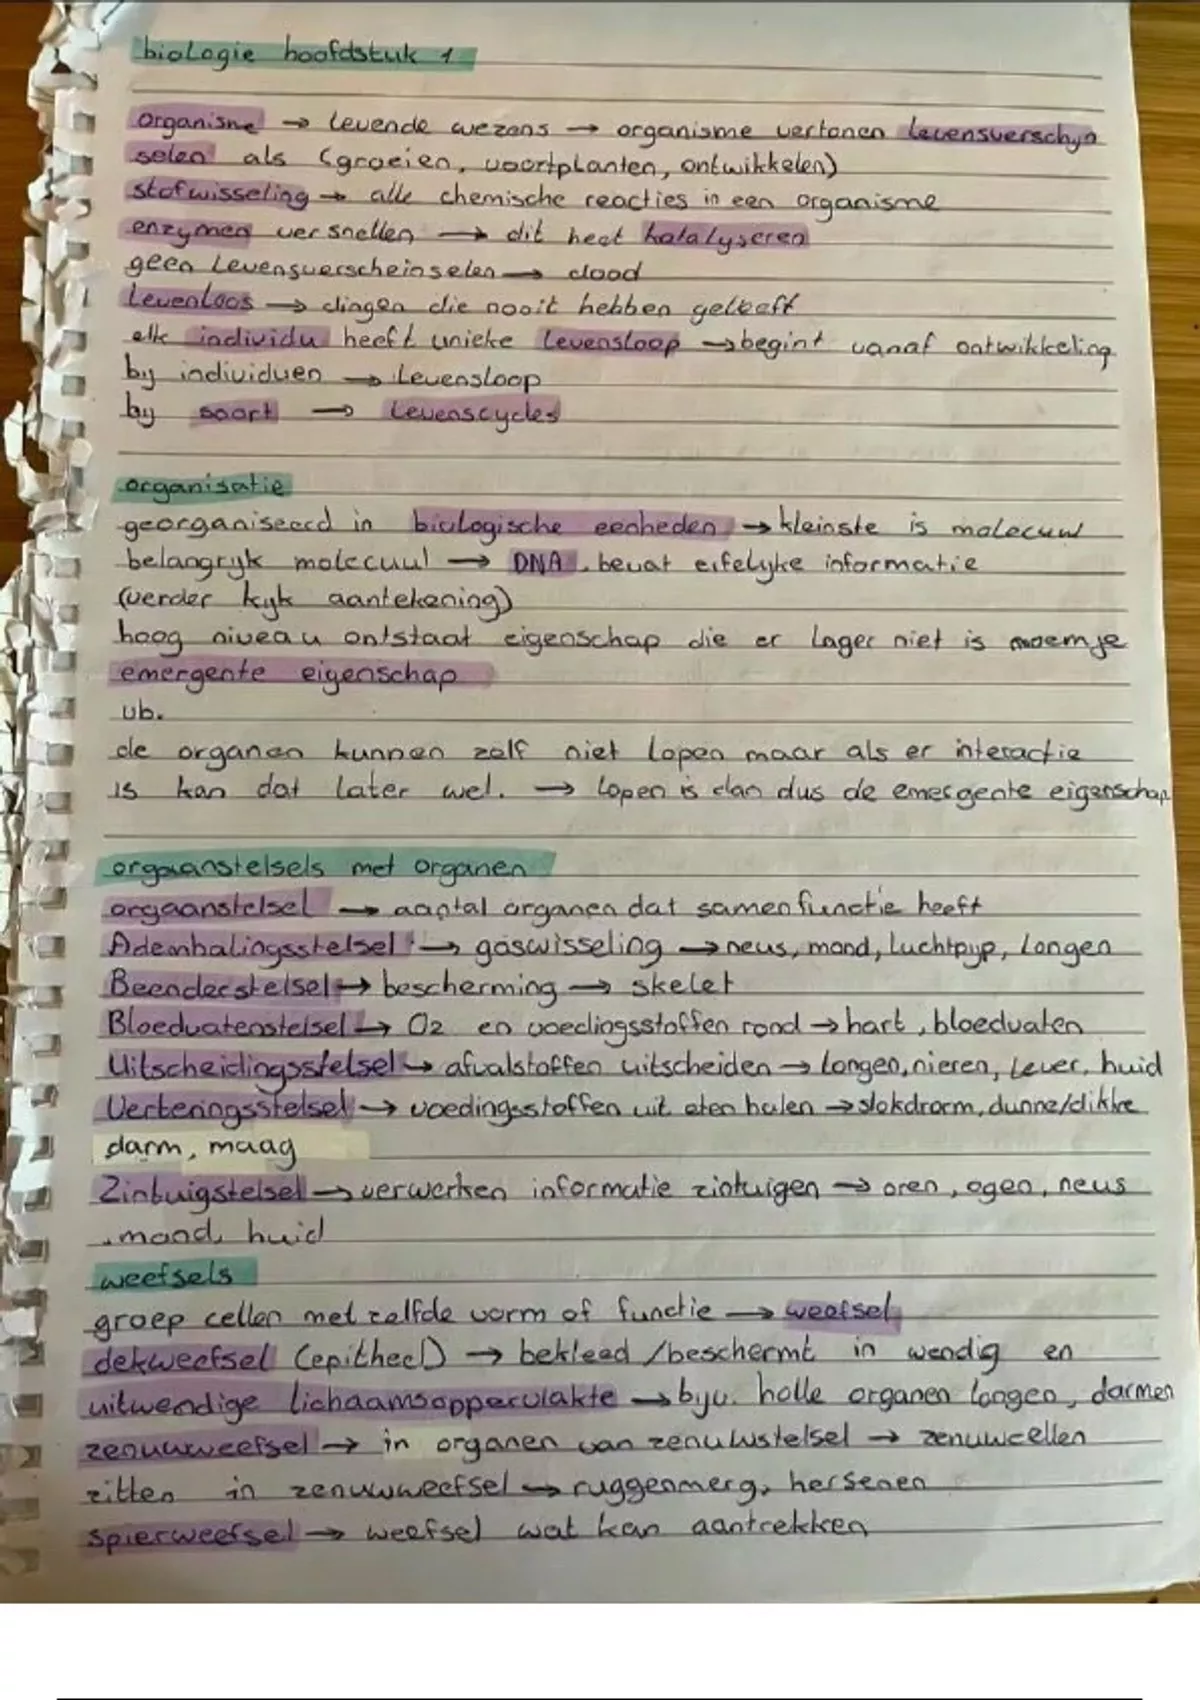 biologie hoofdstuk 1
organisme → levende wezens → organisme vertonen levensverschijn
selen als (groeien, voortplanten, ontwikkelen)
stofwisseling → alle chemische reacties in een organisme
enzymen versnellen → dit heet katalyseren
geen levensverscheinselen → dood
Levenloos → dingen die nooit hebben geleeft
elk individu heeft unieke levensloop → begint vanaf ontwikkeling
bij individuen → Levensloop
bij soort → Levenscycles
organisatie
georganiseerd in biologische eenheden → kleinste is molecuul
belangrijk molecuul → DNA, bevat erfelijke informatie
(verder kijk aantekening)
hoog niveau ontstaat eigenschap die er lager niet is noem je
emergente eigenschap
vb.
de organen kunnen zelf niet lopen maar als er interactie
is kan dat later wel. → lopen is dan dus de emergente eigenschap
orgaanstelsels met organen
orgaanstelsel → aantal organen dat samen functie heeft
Ademhalingsstelsel → gaswisseling → neus, mond, luchtpijp, longen
Beenderstelsel → bescherming → skelet
Bloedvatenstelsel → O2 en voedingsstoffen rond → hart, bloedvaten
Uitscheidingsstelsel → afvalstoffen uitscheiden → longen, nieren, lever, huid
Verteringsstelsel → voedingsstoffen uit eten halen → slokdrarm, dunne/dikke
darm, maag
Zintuigstelsel → verwerken informatie zintuigen → oren, ogen, neus
, mond, huid
weefsels
groep cellen met zelfde vorm of functie → weefsel
dekweefsel (epitheel) → bekleed /beschermt in wendig en
uitwendige lichaamsoppervlakte → bijv. holle organen longen, darmen
zenuwweefsel → in organen van zenuwstelsel → zenuwcellen
zitten in zenuwweefsel → ruggenmerg, hersenen
spierweefsel → weefsel wat kan aantrekken